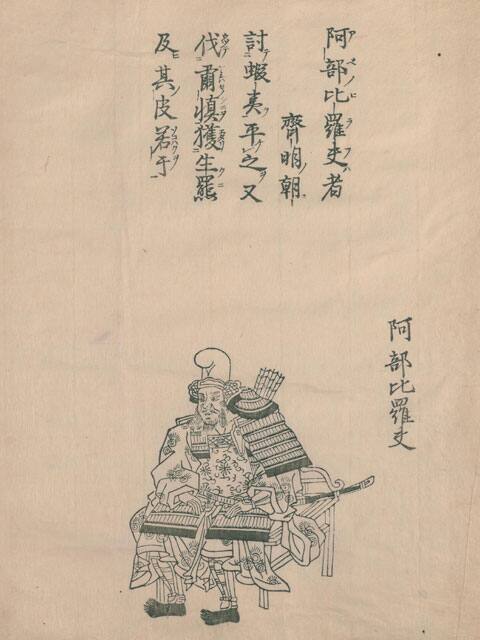 阿部比羅夫者
齊明朝
討蝦夷平之又
伐肅慎獲生羆
及其皮若干
阿部比羅夫